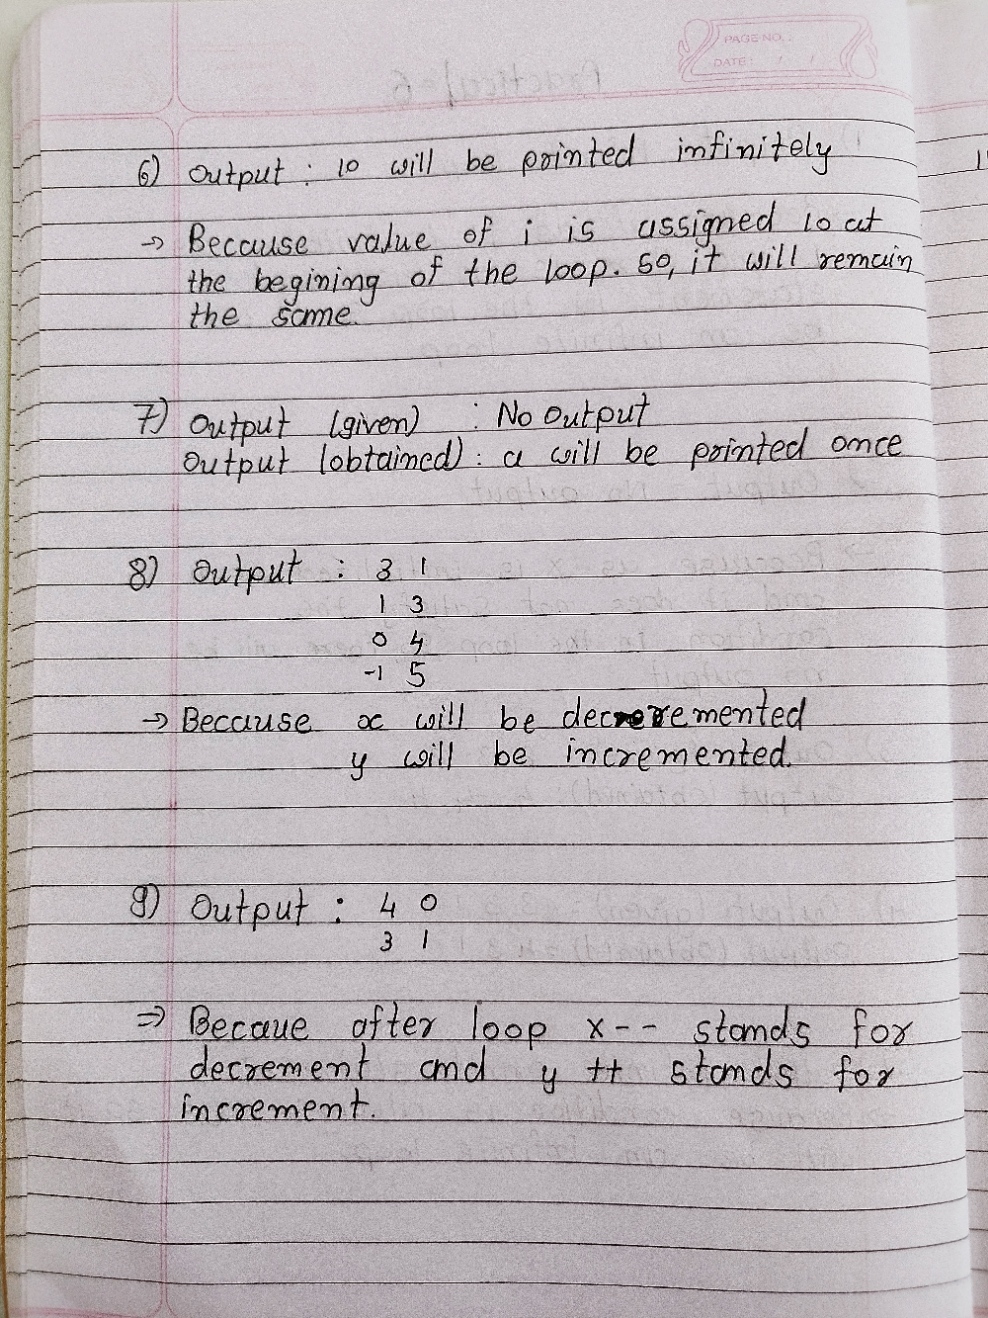 PAGE NO. :
DATE : / /
6) Output : 10 will be printed infinitely
→ Because value of i is assigned 10 at
the begining of the loop. So, it will remain
the same.
7) Output (given) : No Output
Output (obtained) : a will be printed once
8) Output : 3 1
1 3
0 4
-1 5
→ Because x will be decremented
y will be incremented.
9) Output : 4 0
3 1
⇒ Becaue after loop x-- stands for
decrement and y ++ stands for
increment.